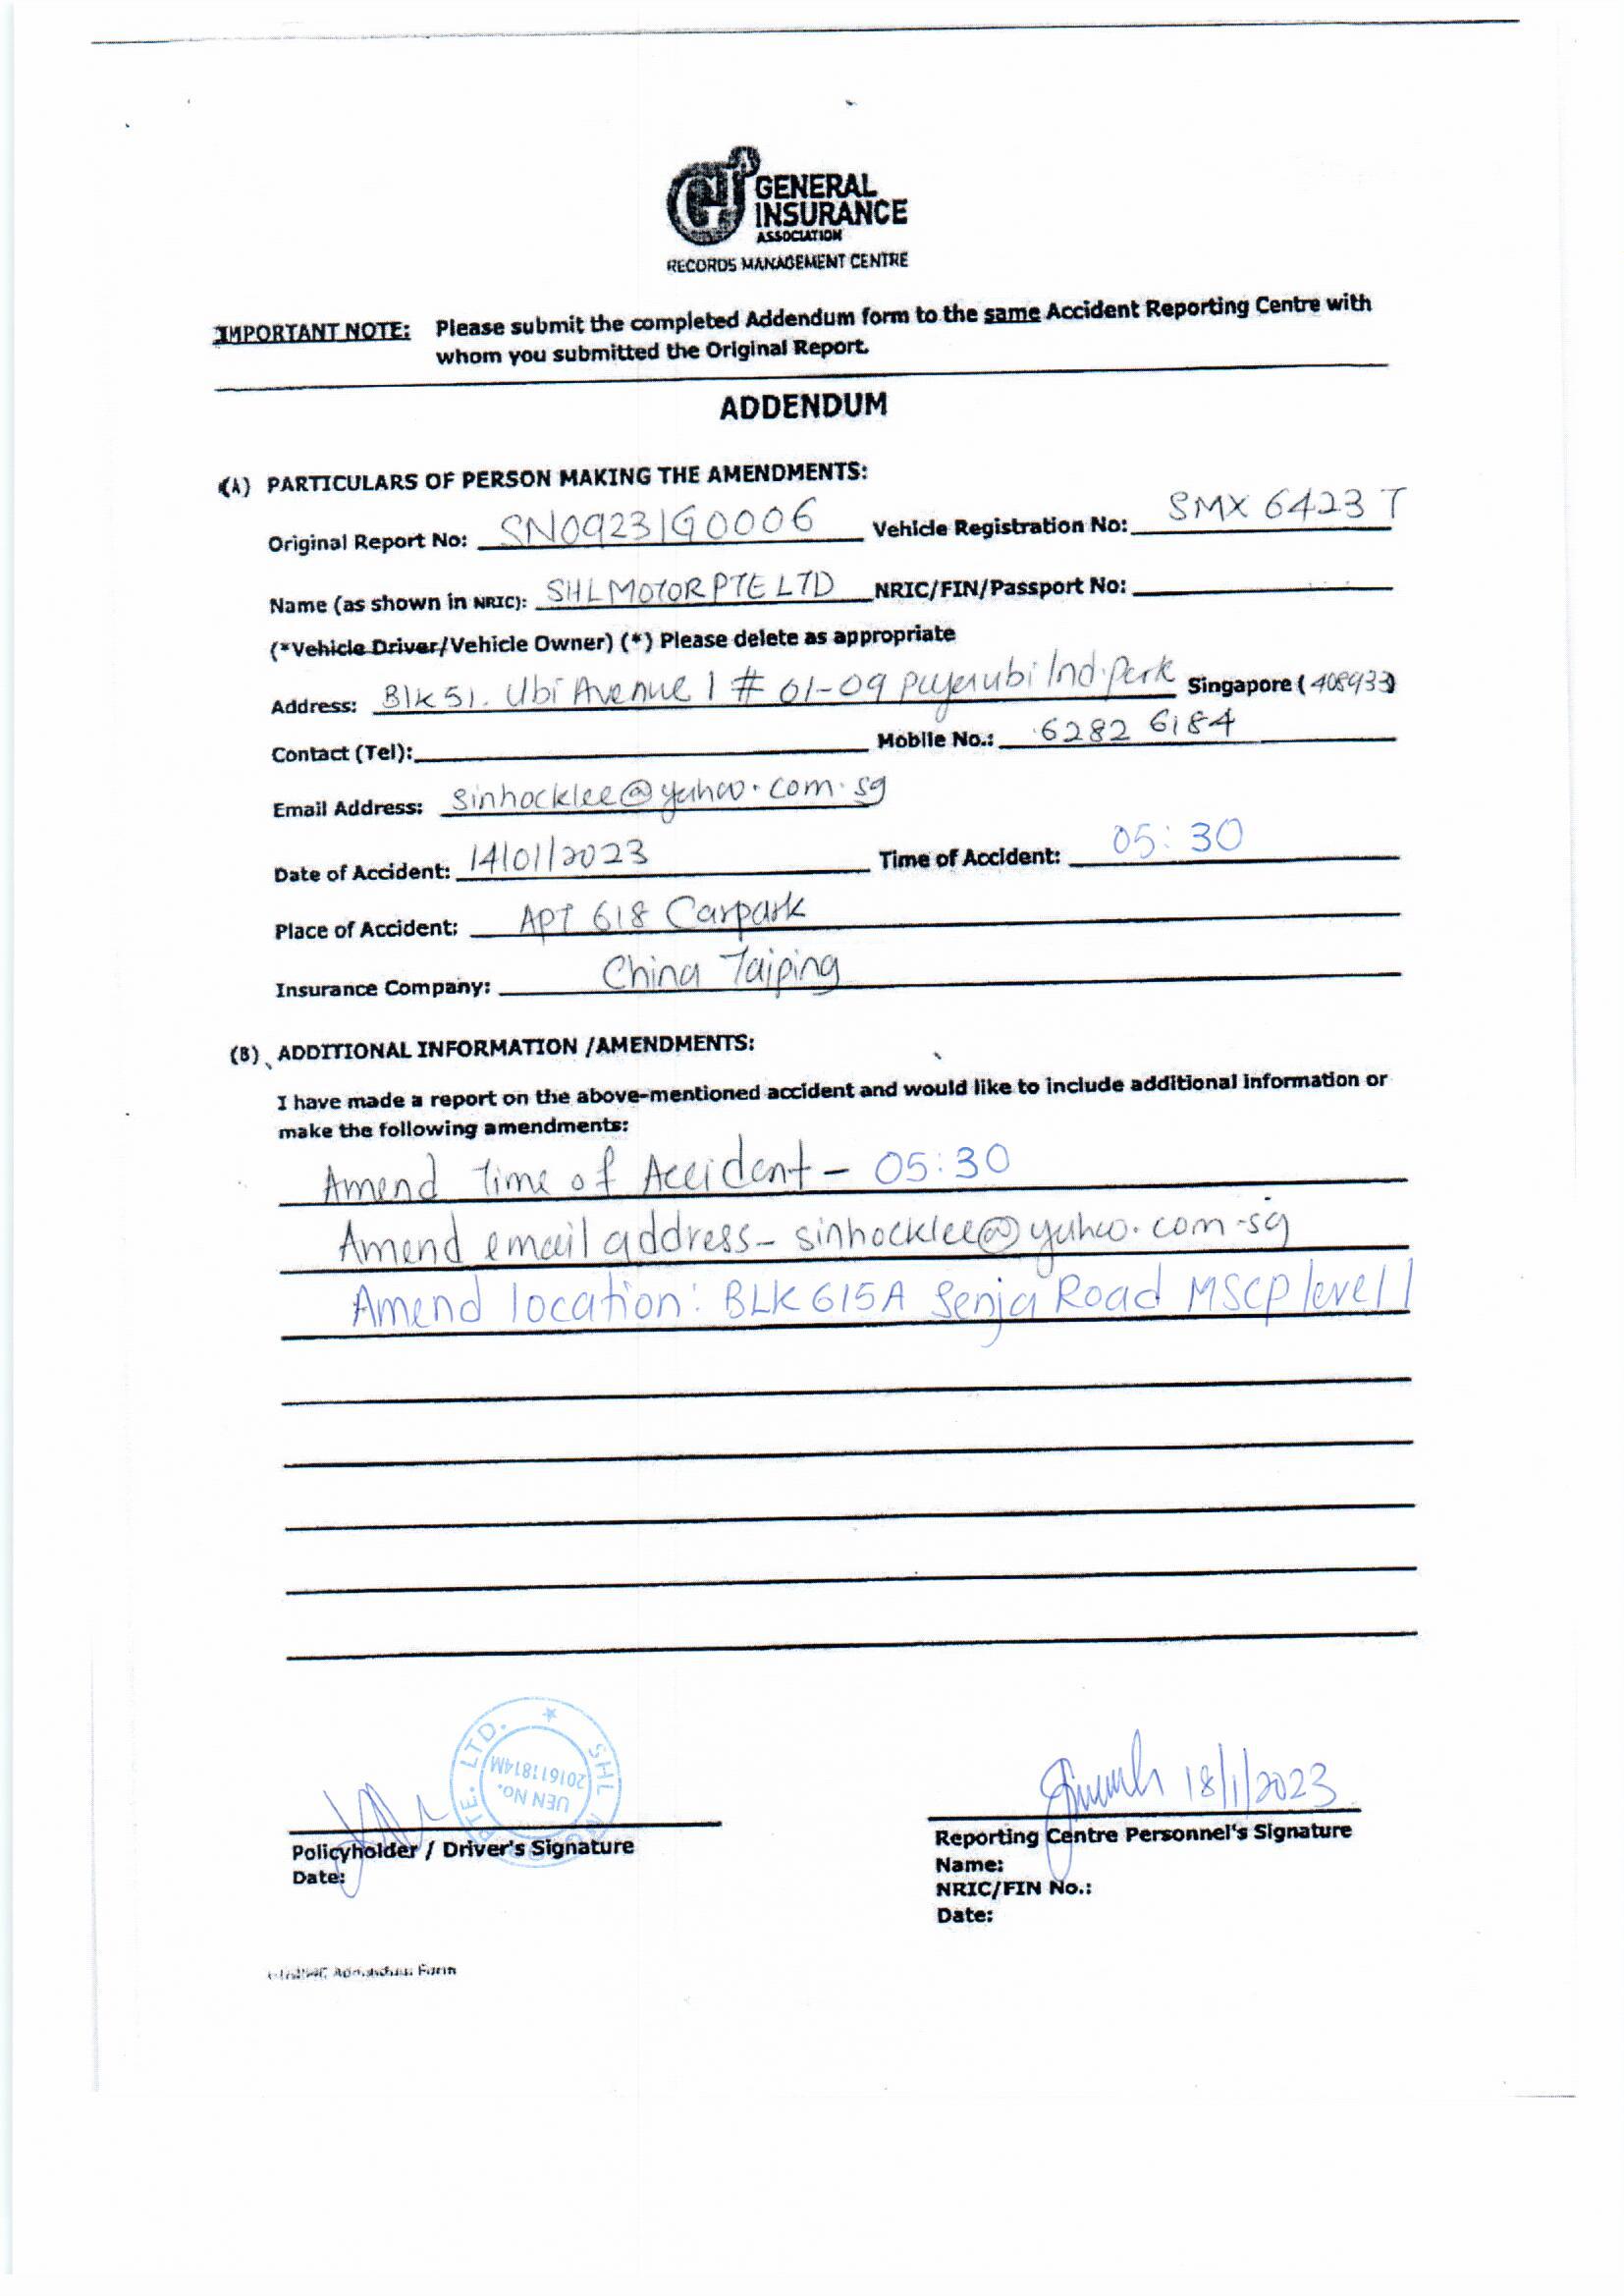 GIA GENERAL
INSURANCE
ASSOCIATION
RECORDS MANAGEMENT CENTRE
IMPORTANT NOTE: Please submit the completed Addendum form to the same Accident Reporting Centre with
whom you submitted the Original Report.
ADDENDUM
(A) PARTICULARS OF PERSON MAKING THE AMENDMENTS:
Original Report No: SN09231G0006 Vehicle Registration No: SMX 6423 T
Name (as shown in NRIC): SHL MOTOR PTE LTD NRIC/FIN/Passport No:
(*Vehicle Driver/Vehicle Owner) (*) Please delete as appropriate
Address: Blk 51. Ubi Avenue 1 # 01-09 Payaubi Ind.park Singapore (408933)
Contact (Tel): Mobile No.: 6282 6184
Email Address: sinhocklee@yahoo.com.sg
Date of Accident: 14/01/2023 Time of Accident: 05:30
Place of Accident: APT 618 Carpark
Insurance Company: China Taiping
(B) ADDITIONAL INFORMATION /AMENDMENTS:
I have made a report on the above-mentioned accident and would like to include additional information or
make the following amendments:
Amend Time of Accident - 05:30
Amend email address - sinhocklee@yahoo.com.sg
Amend location: BLK 615A Senja Road MSCP level 1
SHL MOTOR PTE. LTD.
UEN No.
201611814M
18/1/2023
Policyholder / Driver's Signature
Date:
Reporting Centre Personnel's Signature
Name:
NRIC/FIN No.:
Date:
Addendum Form